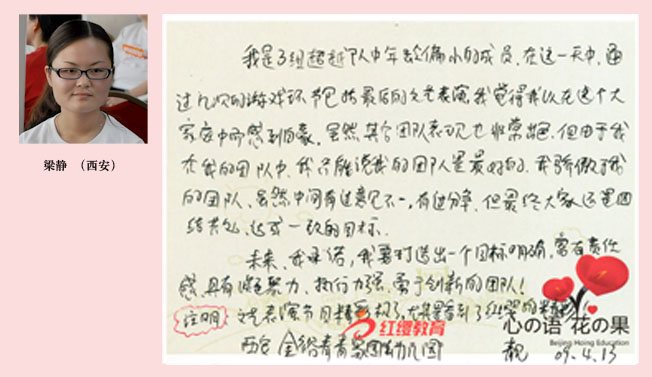 梁静 （西安）
我是3组超越队中年龄偏小的成员，在这一天中，通
过几次的游戏环节包括最后的文艺表演，我觉得我以在这个大
家庭中而感到自豪。虽然其它团队表现也非常出色，但由于我
在我的团队中，我只能说我的团队是最好的，我骄傲于我
的团队，虽然中间有过意见不一，有过分争，但最终大家还是团
结起来，达成一致的目标。
未来，我承诺，我要打造出一个目标明确，富有责任
感，具有凝聚力、执行力强、勇于创新的团队！
注明：文艺表演节目精彩极了，尤其是看到了红婴的精彩
红缨教育
心の语 花の果
Beijing Hoing Education
西安 金裕青青家园幼儿园
靓 09.4.13